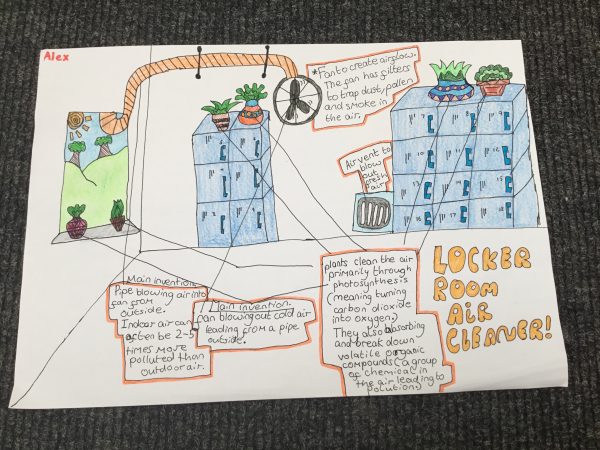 Alex
*Fan to create airflow.
The fan has filters
to trap dust, pollen
and smoke in
the air.
Air vent to
blow
out
fresh
air
Main invention.
Pipe blowing air into
fan from
outside.
Indoor air can
often be 2-5
times more
polluted than
outdoor air.
Main invention.
Fan blowing out cold air
leading from a pipe
outside.
plants clean the air
primarily through
photosynthesis
(meaning turning
carbon dioxide
into oxygen.)
They also absorbing
and break down
volatile organic
compounds (a group
of chemical in
the air leading to
polution)
LOCKER
ROOM
AIR
CLEANER!